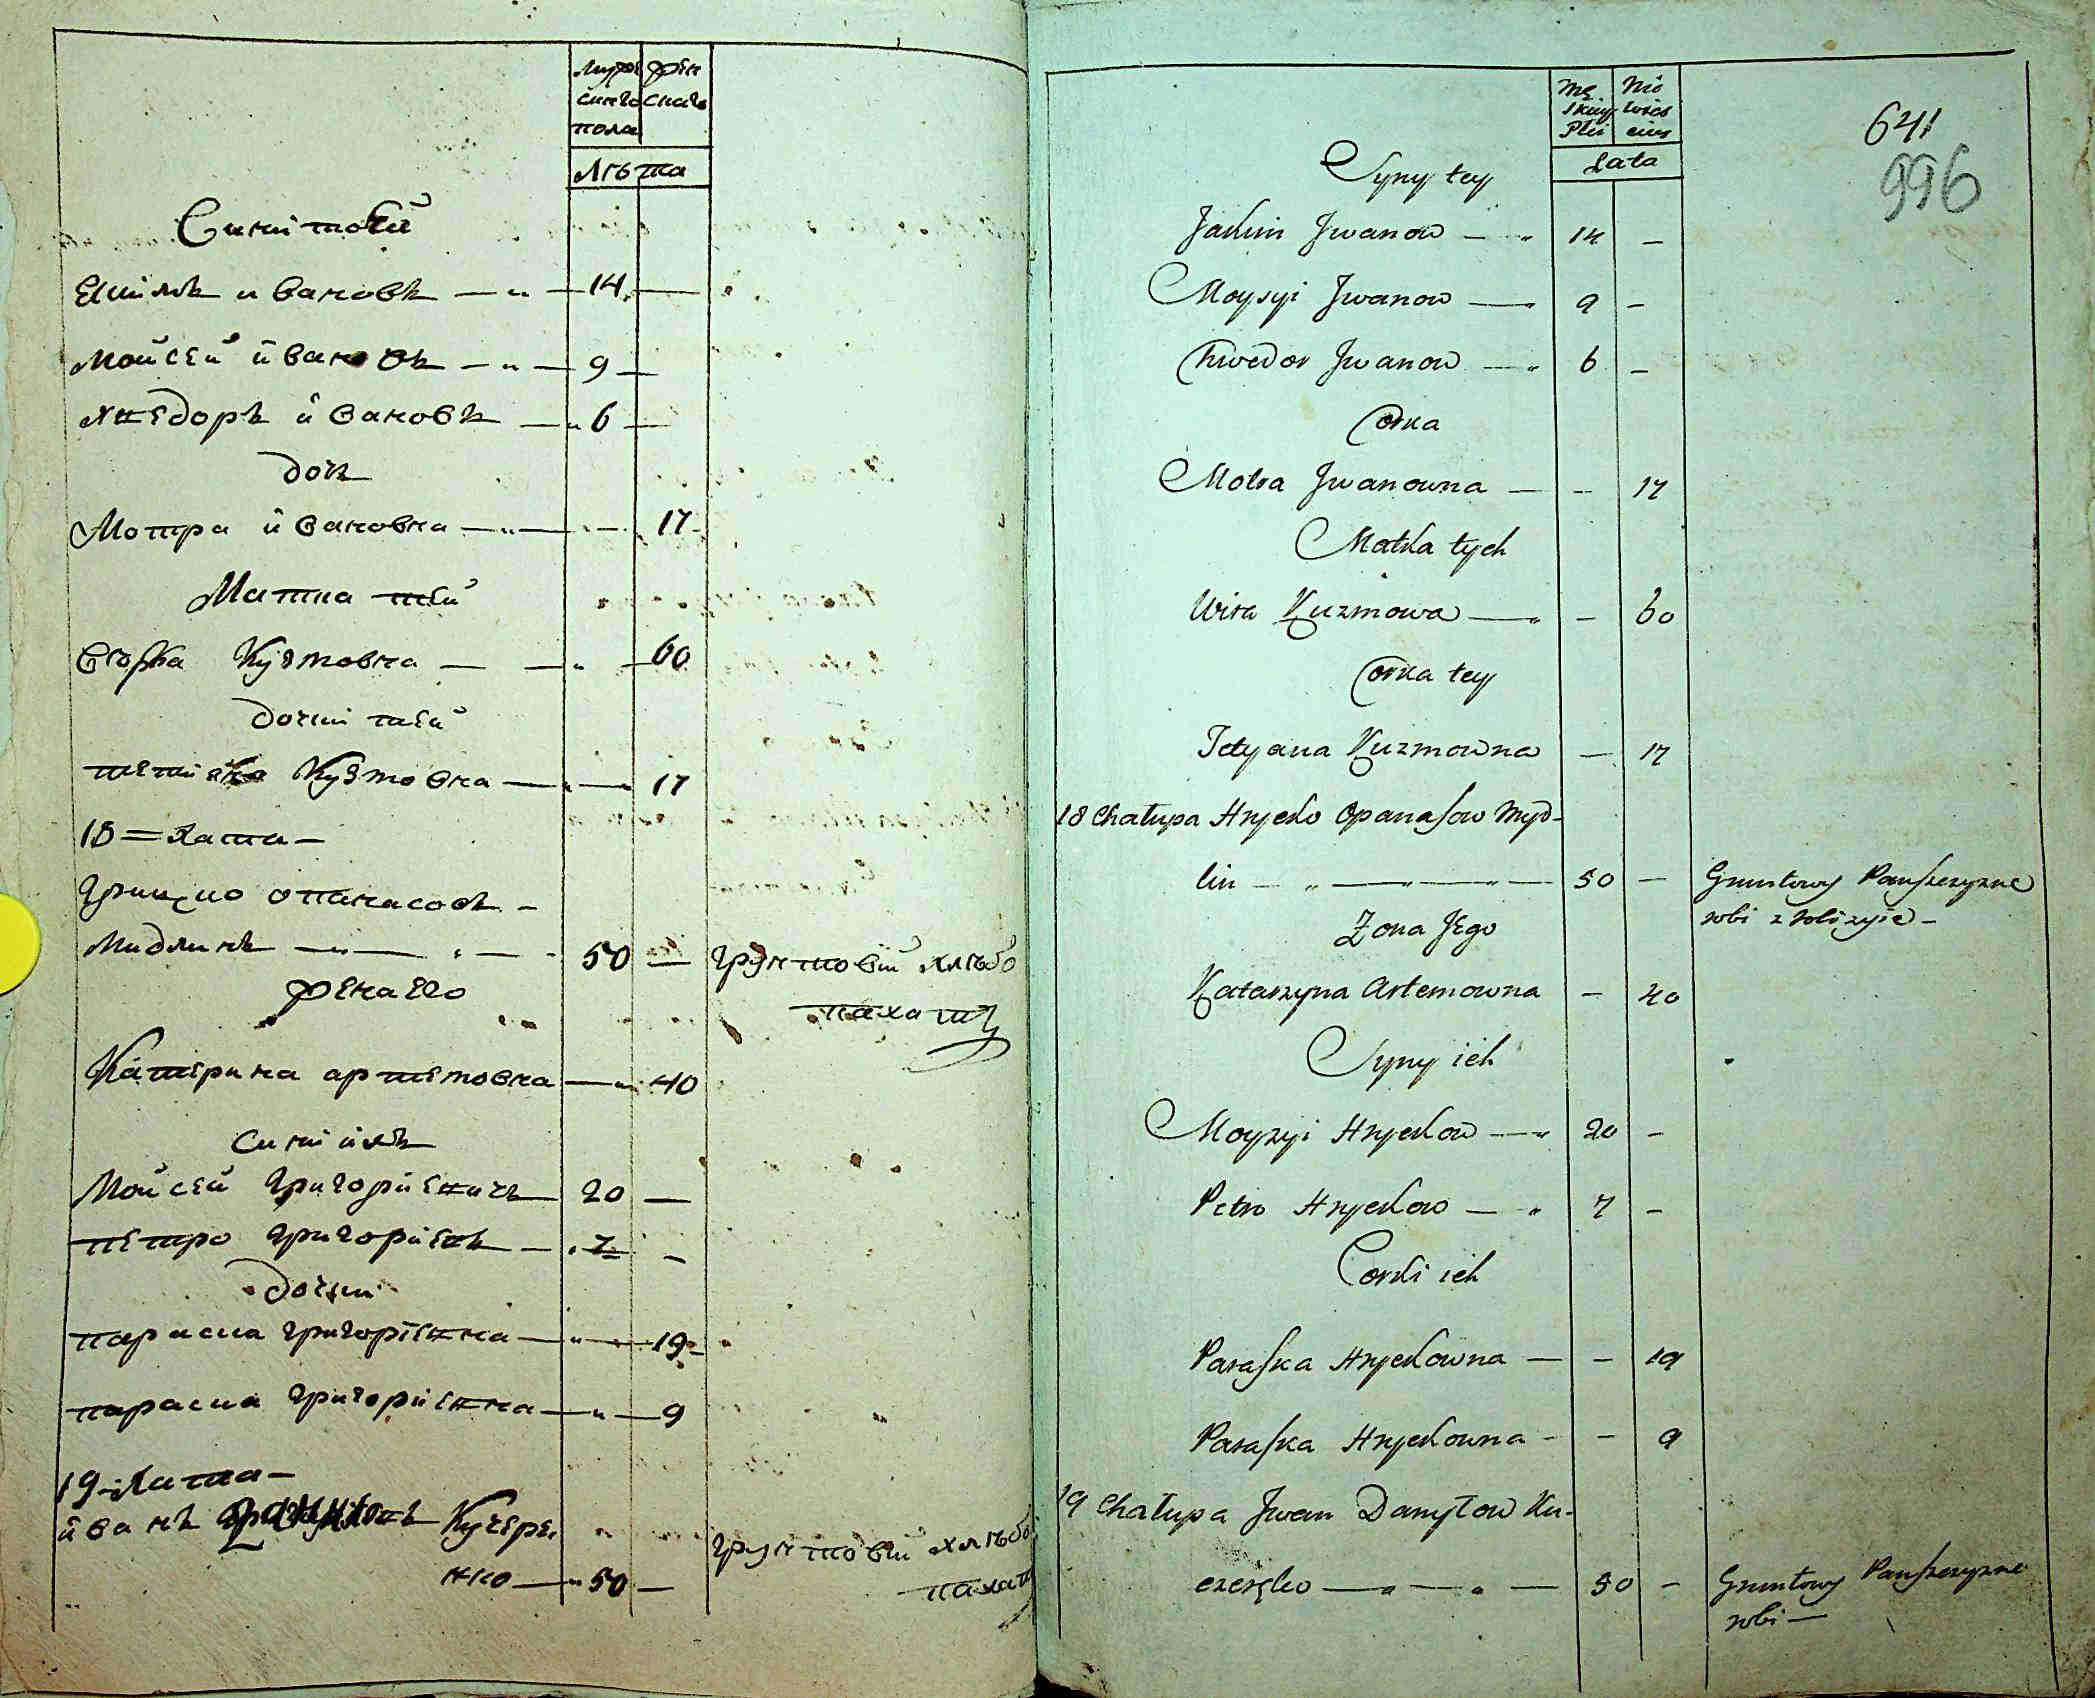 Мужеска пола
женска
Лѣта
Сини тоей
Екимъ ивановъ — „ — 14 —
Мойсей ивановъ — „ — 9 —
Хведоръ ивановъ — „ 6 —
дочь
Мотра ивановна — „ — — 17
Матка тей
Кузмовна — — „ — 60
дочки тей
Кузмовна — „ — 17
18 = хата —
Грицко опанасовъ —
Мидлинъ — „ — „ — 50 — грунтовий хлѣбо
жена его
пахатъ
Катерина артемовна — „ 40
сини ихъ
Мойсей григориевичъ 20 —
петро григориевъ — „ 7 —
дочки
параска григориевна — „ — 19
параска григориевна — „ — 9
19 хата —
иванъ Куцере
нко — „ 50 — грунтовий хлѣбо
пахатъ
Męskiey Płci
Niewieściey
Lata
641
996
Syny tey
Jakim Jwanow — „ 14 —
Moysyi Jwanow — „ 9 —
Chwedor Jwanow — „ 6 —
Corka
Motra Jwanowna — — 17
Matka tych
Wira Kuzmowa — „ — 60
Corka tey
Tetyana Kuzmowna — 17
18 Chałupa Hrycko Opanasow Myd-
lin — „ — „ — „ — 50 — Gruntowy Panszczyzne
robi
Zona Jego
Katarzyna Artemowna — 40
Syny ich
Moyzyi Hryckow — „ 20 —
Petro Hryckow — „ 7 —
Corki ich
Paraska Hryckowna — — 19
Paraska Hryckowna - — 9
19 Chałupa Jwan Danyłow Ku-
czeręko — „ — „ — 50 — Gruntowy Panszczyzne
robi —